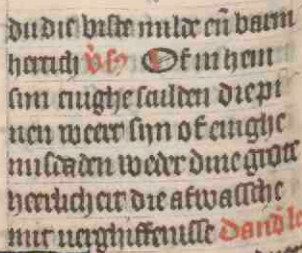 du die biste milde eñ barm
hertich v̓s Of in hem
sijn enighe sculden die pi
nen weert sijn of enighe
misdaden weder dine grote
heerlicheit die afwassche
mit verghiffenisse Dand lo